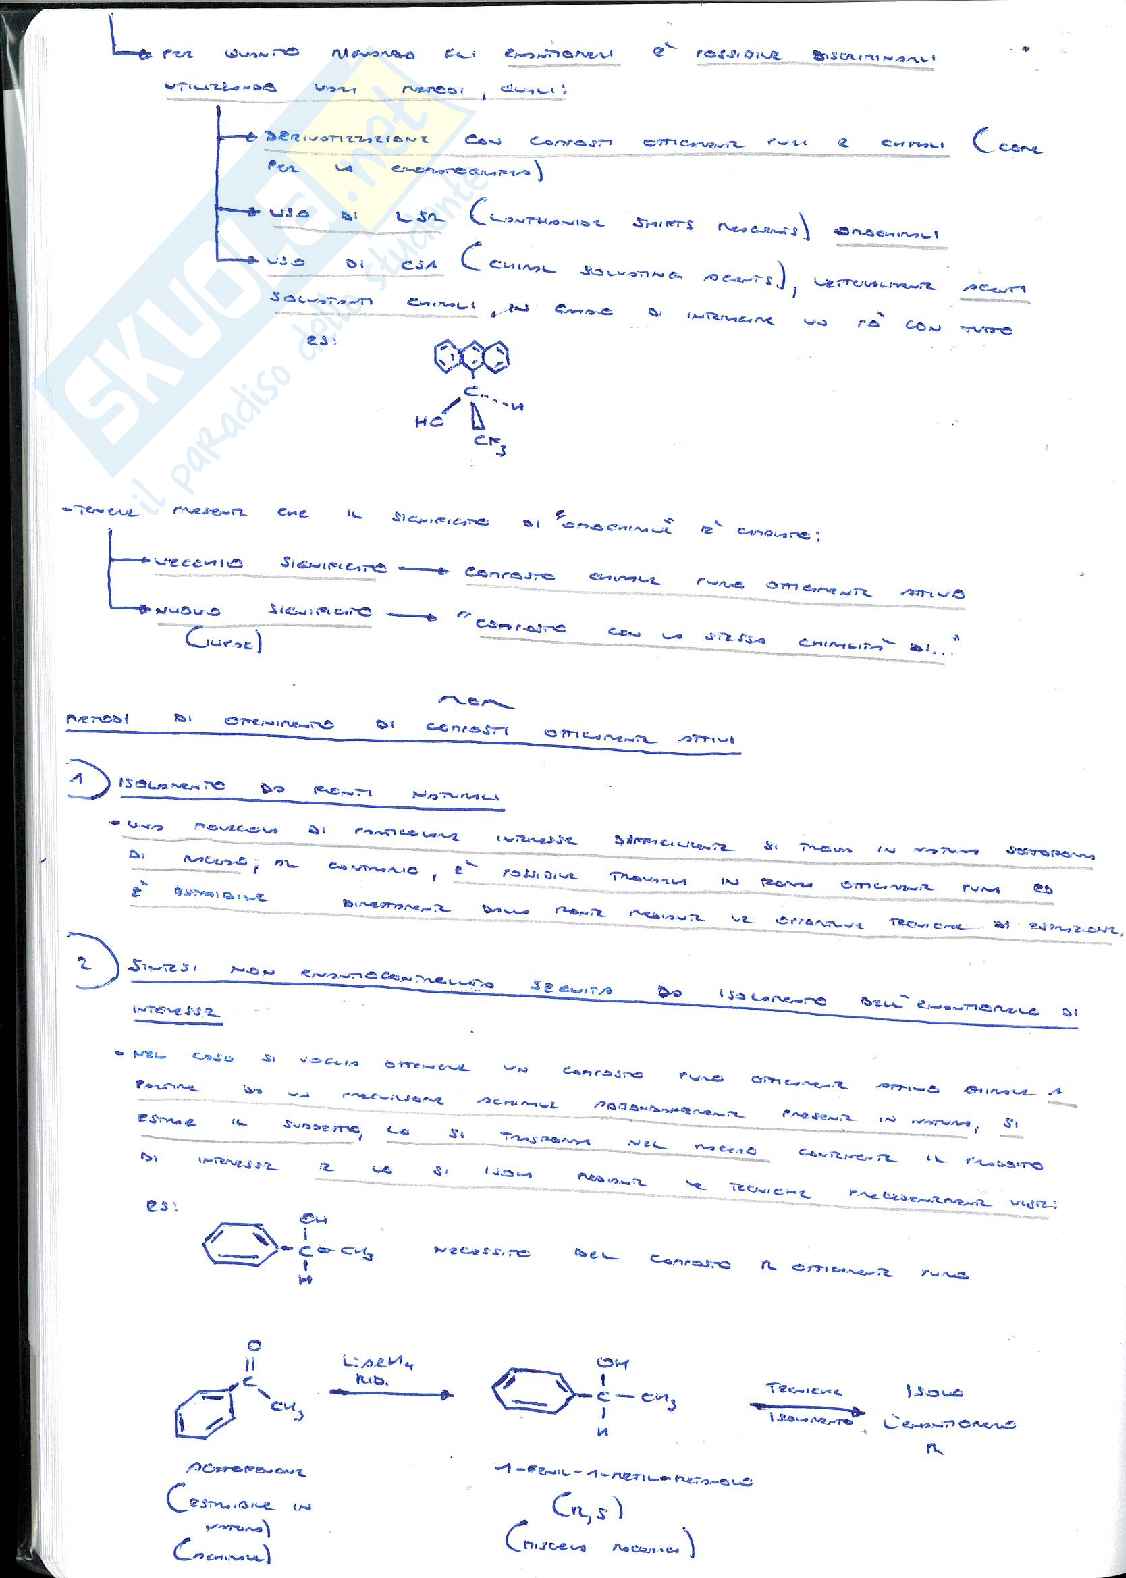 PER QUANTO RIGUARDA GLI ENANTIOMERI È POSSIBILE DISCRIMINARLI
UTILIZZANDO VARI METODI, QUALI:
DERIVATIZZAZIONE CON COMPOSTI OTTICAMENTE PURI E CHIRALI (COME
PER LA CROMATOGRAFIA)
USO DI LSR (LANTHANIDE SHIFTS REAGENTS) OMOCHIRALI
USO DI CSA (CHIRAL SOLVATING AGENTS), LETTERALMENTE AGENTI
SOLVATANTI CHIRALI, IN GRADO DI INTERAGIRE UN PÒ CON TUTTO
ES:
C H
HO
CF3
SKUOLA.net
il paradiso dello studente
-TENERE PRESENTE CHE IL SIGNIFICATO DI "OMOCHIRALE" È CAMBIATO:
VECCHIO SIGNIFICATO → COMPOSTO CHIRALE PURO OTTICAMENTE ATTIVO
NUOVO SIGNIFICATO → "COMPOSTO CON LA STESSA CHIRALITÀ DI..."
(IUPAC)
METODI DI OTTENIMENTO DI COMPOSTI OTTICAMENTE ATTIVI
1) ISOLAMENTO DA FONTI NATURALI
• UNA MOLECOLA DI PARTICOLARE INTERESSE DIFFICILMENTE SI TROVA IN NATURA SOTTOFORMA
DI RACEMO; AL CONTRARIO, È POSSIBILE TROVARLA IN FORMA OTTICAMENTE PURA ED
È ESTRAIBILE DIRETTAMENTE DALLA FONTE MEDIANTE LE OPPORTUNE TECNICHE DI ESTRAZIONE.
2) SINTESI NON ENANTIOCONTROLLATA SEGUITA DA ISOLAMENTO DELL'ENANTIOMERO DI
INTERESSE
• NEL CASO SI VOGLIA OTTENERE UN COMPOSTO PURO OTTICAMENTE ATTIVO CHIRALE A
PARTIRE DA UN PRECURSORE ACHIRALE ABBONDANTEMENTE PRESENTE IN NATURA, SI
ESTRAE IL SUDDETTO, LO SI TRASFORMA NEL RACEMO CONTENENTE IL PRODOTTO
DI INTERESSE E LO SI ISOLA MEDIANTE LE TECNICHE PRECEDENTEMENTE VISTE:
ES:
OH
C CH3 NECESSITO DEL COMPOSTO R OTTICAMENTE PURO
H
O
C CH3 LiAlH4 RID. OH C CH3 H TECNICHE ISOLAMENTO ISOLO L'ENANTIOMERO R
ACETOFENONE 1-FENIL-1-METIL-METANOLO
(ESTRAIBILE IN (R,S)
NATURA) (MISCELA RACEMICA)
(ACHIRALE)